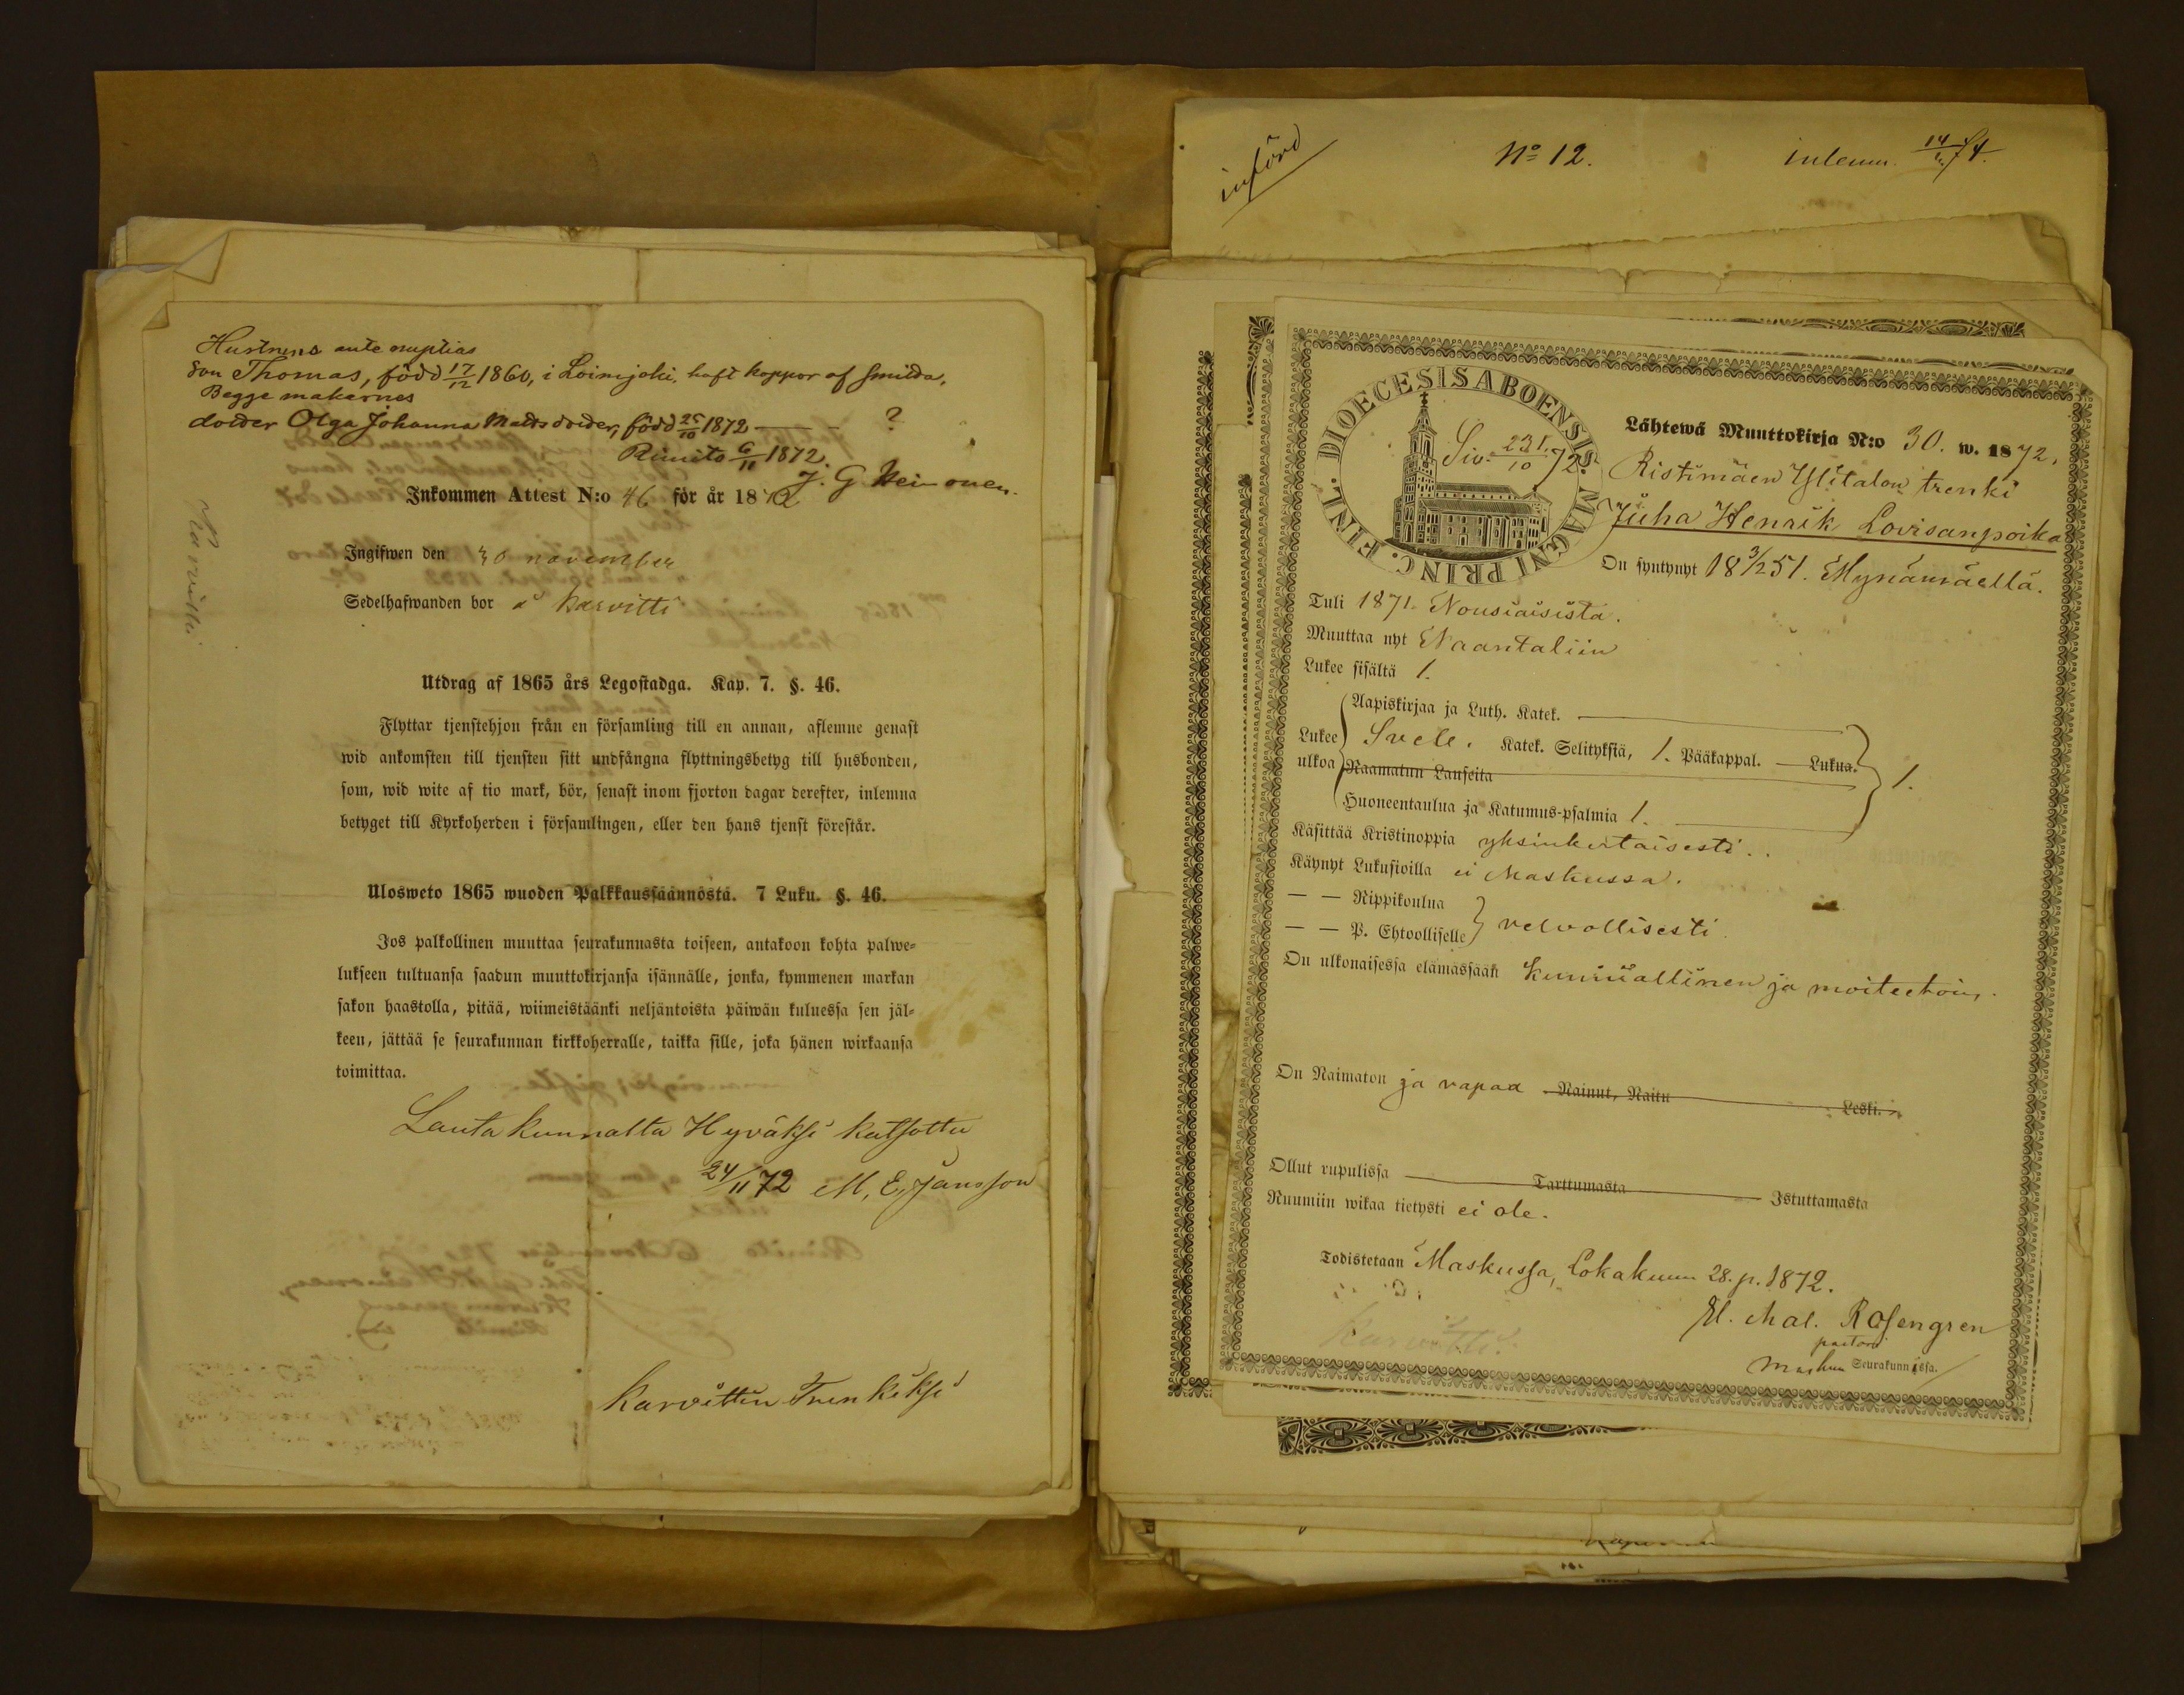 Hustruns ante nuptias
son Thomas, född 17/12 1860, i Loimjoki, haft koppor af smitta,
Begge makarnes
dotter Olga Johanna Matts dotter, född 25/10 1872 — - ?
Rimito 6/11 1872.
J. G. Heinonen.
Inkommen Attest N:o 46 för år 1872
Karvitti
Ingifwen den 30 november
Sedelhafwanden bor i Karvitti
Utdrag af 1865 års Legostadga. Kap. 7. §. 46.
Flyttar tjenstehjon från en församling till en annan, aflemne genast
wid ankomsten till tjensten sitt undfångna flyttningsbetyg till husbonden,
som, wid wite af tio mark, bör, senast inom fjorton dagar derefter, inlemna
betyget till Kyrkoherden i församlingen, eller den hans tjenst förestår.
Ulosweto 1865 wuoden Palkkaussäännöstä. 7 Luku. §. 46.
Jos palkollinen muuttaa seurakunnasta toiseen, antakoon kohta palwe-
lukseen tultuansa saadun muuttokirjansa isännälle, jonka, kymmenen markan
sakon haastolla, pitää, wiimeistäänki neljäntoista päiwän kuluessa sen jäl-
keen, jättää se seurakunnan kirkkoherralle, taikka sille, joka hänen wirkaansa
toimittaa.
Lautakunnalta Hyväksi katsottu
24/11 72 M, E, Jansson
Karvittin Trenkiksi
införd
No 12.
inlemn. 14/ 74.
FINL. DIOECESIS ABOENSIS MAGNI PRINC.
Siv. 231. 10/72
Lähtewä Muuttokirja N:o 30. w. 1872.
Ristimäen Ylitalon trenki
Juha Henrik Lovisanpoika
On syntynyt 18 3/2 51. Mynämäellä.
Tuli 1871 Nousiaisista.
Muuttaa nyt Naantaliin
Lukee sisältä 1.
Aapiskirjaa ja Luth. Katek. —
Lukee Svele. Katek. Selityksiä, 1. Pääkappal. — Lukua. 1.
ulkoa Raamatun Lauseita
Huoneentaulua ja Katumus-psalmia 1. —
Käsittää Kristinoppia yksinkertaisesti.
Käynyt Lukusioilla ei Maskussa.
— — Rippikoulua
— — P. Ehtoolliselle velvollisesti
On ulkonaisessa elämässään kunniallinen ja moiteetoin.
On Naimaton ja vapaa Nainut, Naitu Leski.
Ollut rupulissa — Tarttumasta — Istuttamasta
Ruumiin wikaa tietysti ei ole.
Todistetaan Maskussa, Lokakuun 28. p. 1872.
Karvitti.
Mal. Rosengren
pastori
Maskun Seurakunnissa.